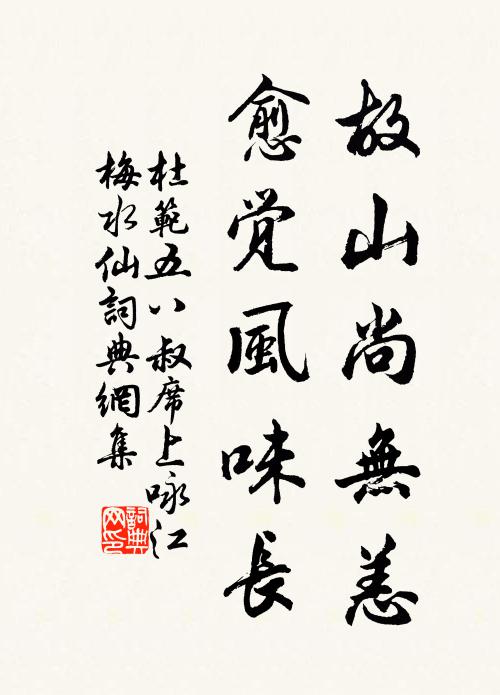 故山尚無恙
愈覚風味長
杜範五八叔席上咏江
梅水仙詞典網集
詞典
网印